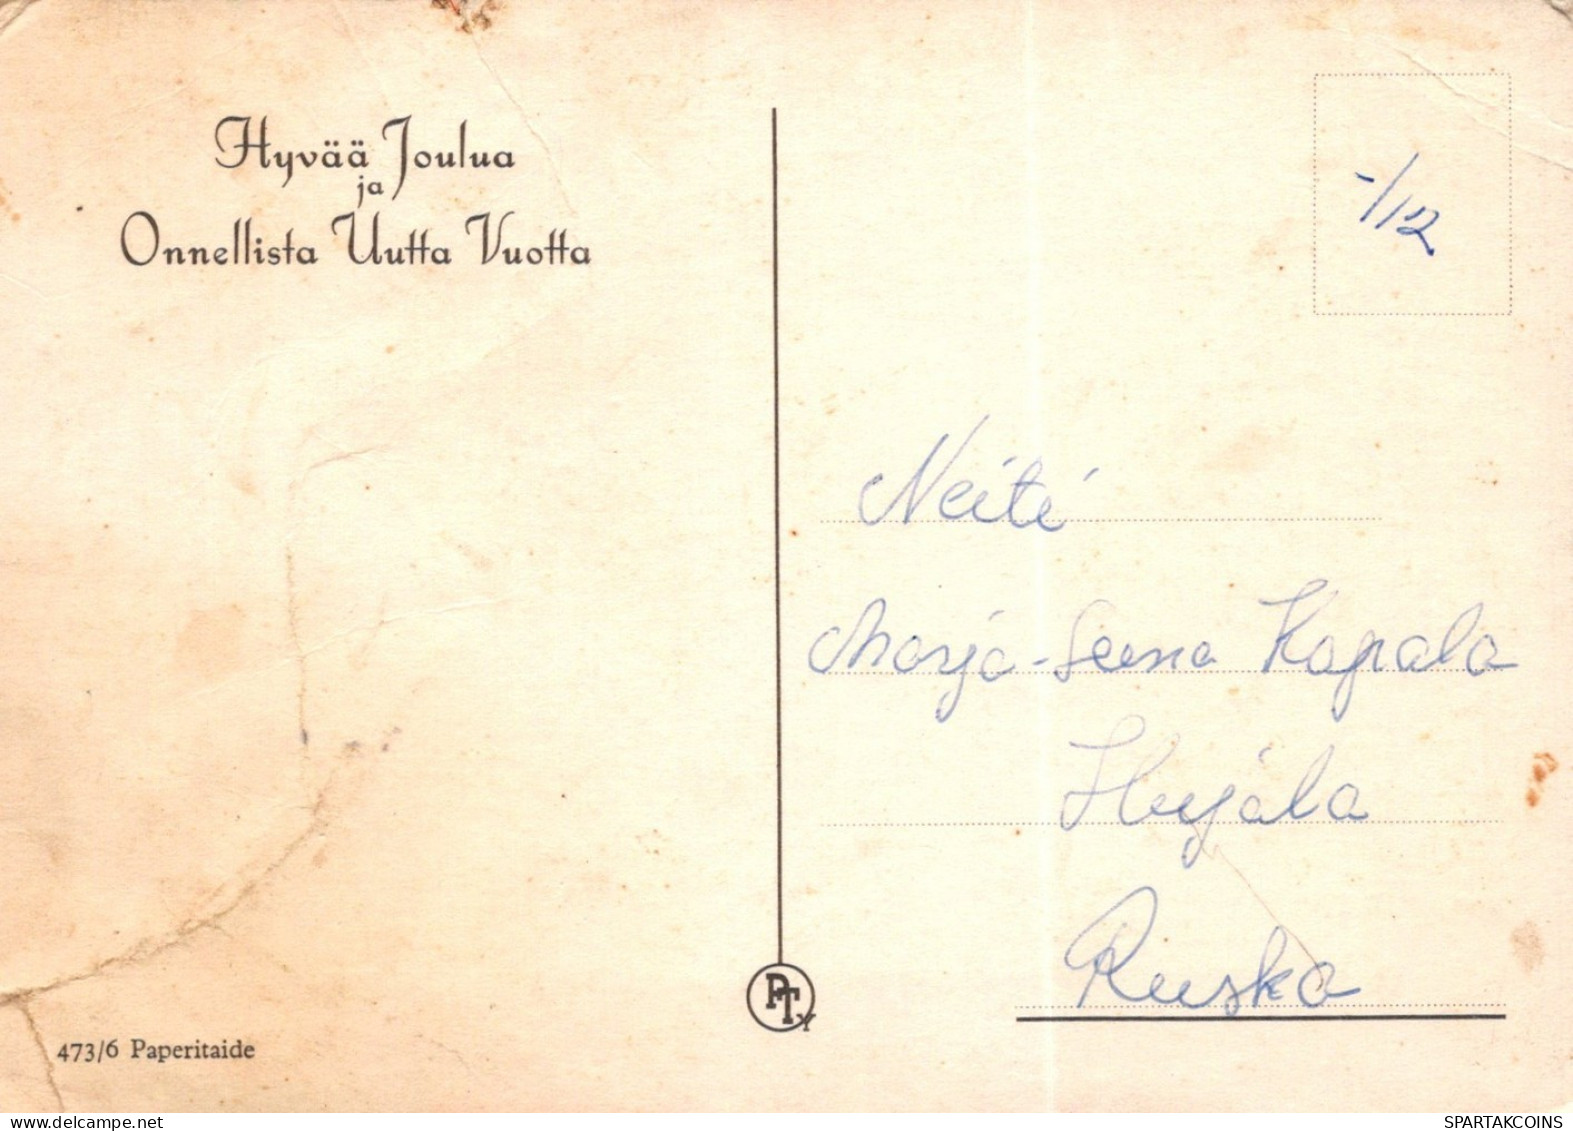 Hyvää Joulua
ja
Onnellista Uutta Vuotta
-/12
Neiti
Marja-Leena Kapala
Hujala
Ruska
PTY
473/6 Paperitaide
www.delcampe.net
SPARTAKCOINS